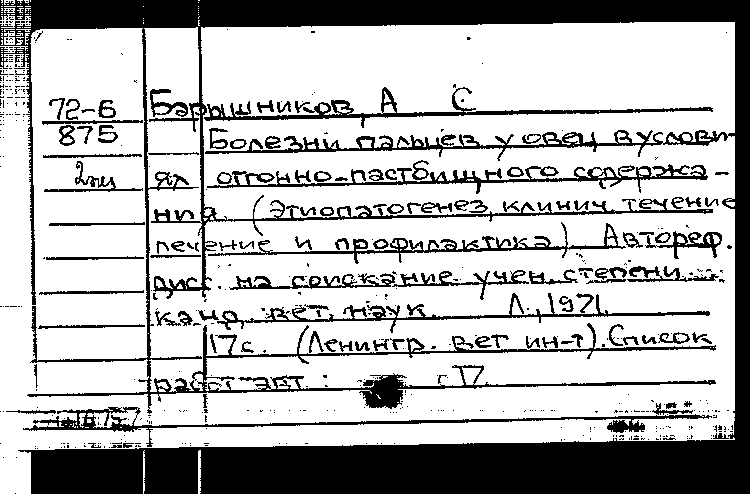 72-6 Барышников, А С
875 Болезни пальцев у овец в услови-
2экз ях отгонно-пастбищного содержа-
ния. (Этиопатогенез, клинич. течение
лечение и профилактика). Автореф.
дисс. на соискание учен. степени
канд. вет. наук. Л., 1971.
17с. (Ленингр. вет ин-т). Список
работ авт: с 17